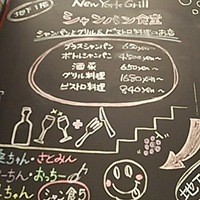 New York Grill
シャンパン食堂
シャンパンとグリル&ビストロ料理のお店
グラスシャンパン 650yen〜
ボトルシャンパン 4500yen〜
酒菜 680yen〜
グリル料理 1680yen〜
ビストロ料理 840yen〜
ちゃん・さとみん
ーちん・おっちー
ちゃん
シャン食う
地下